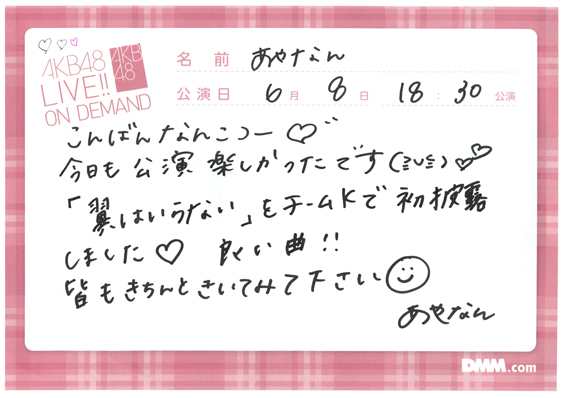 AKB48
LIVE!!
ON DEMAND
AKB
48
名前 あやなん
公演日 6月8日 18:30公演
こんばんなんこつー♡
今日も公演楽しかったです(≧∪≦)
「翼はいらない」をチームKで初披露
しました♡ 良い曲!!
皆もきちんときいてみて下さい
あやなん
DMM.com